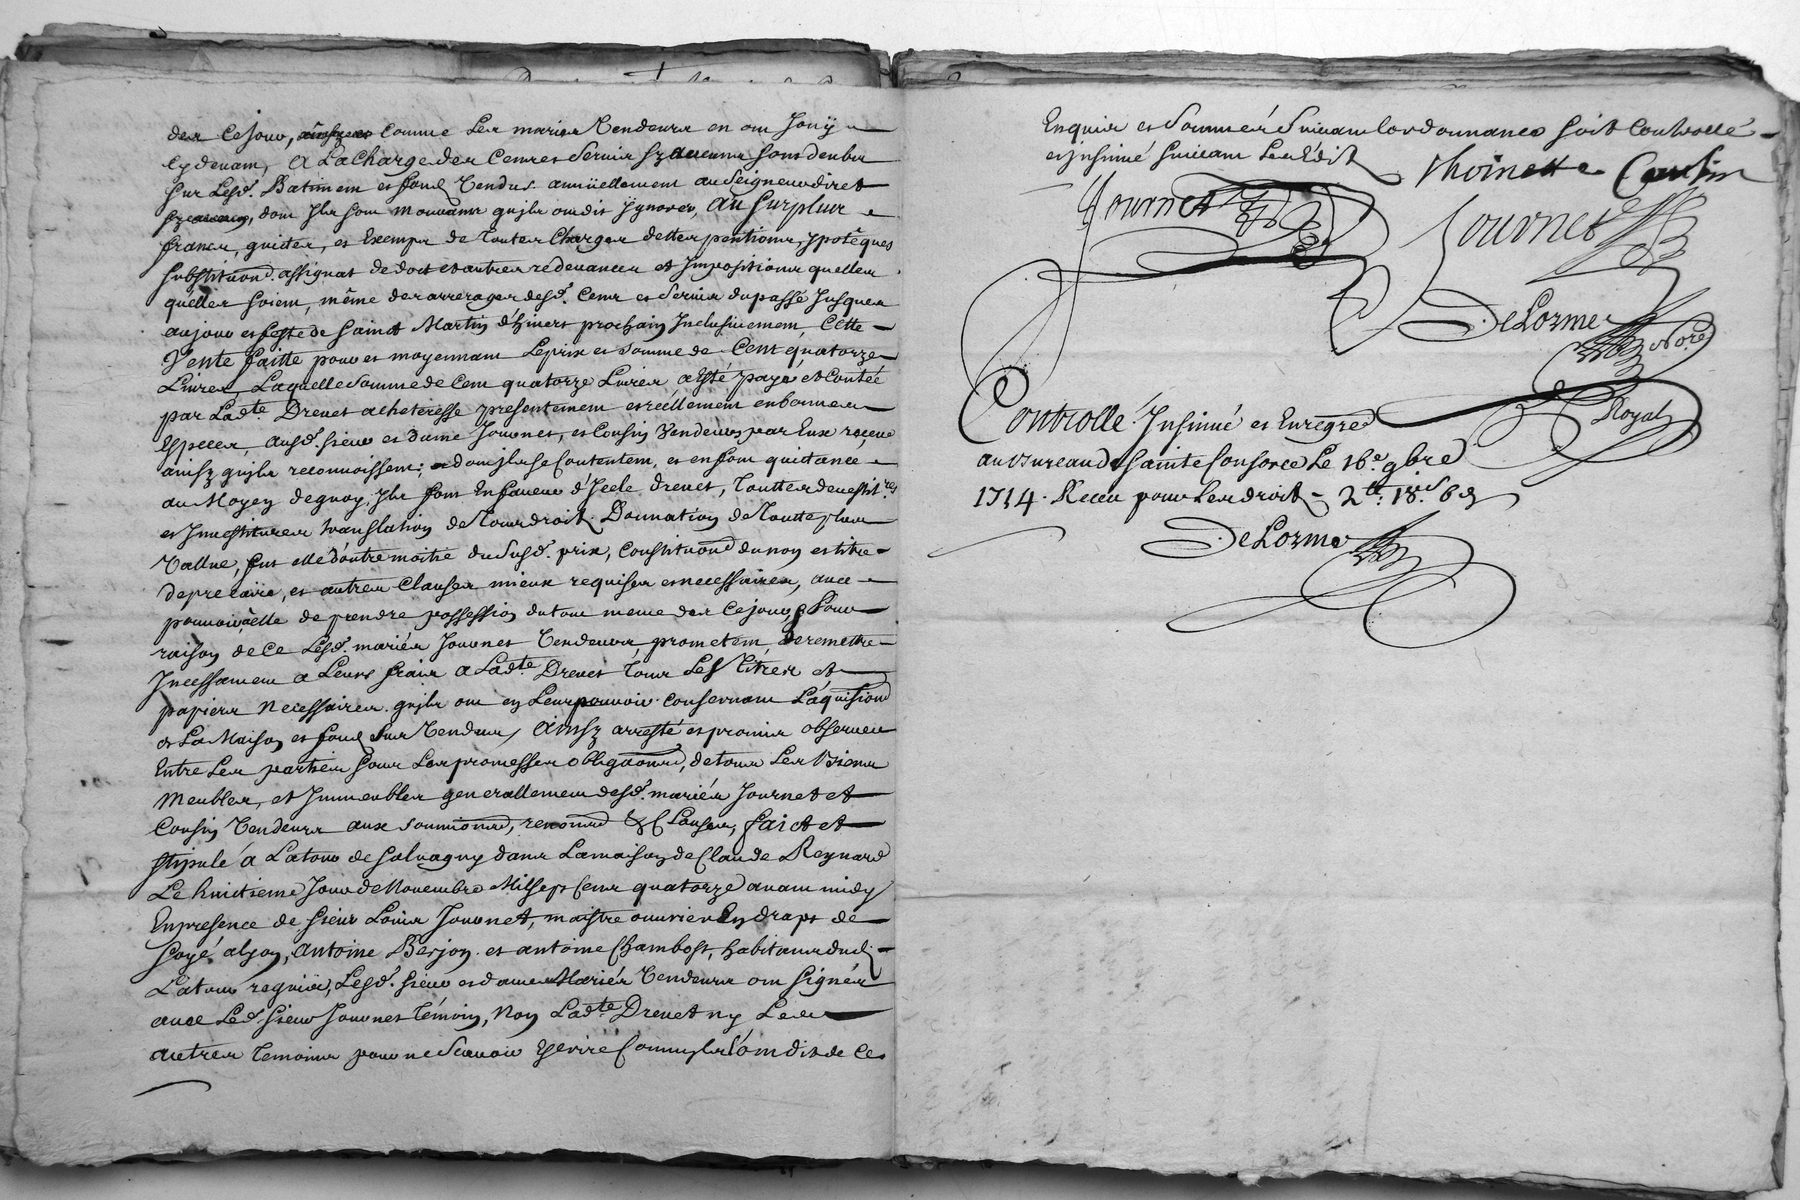 des ce jour, comme les mariés vendeurs en ont jouÿ
cy devant, A La Charge des Cences Servis sy aucuns sont deubz
sur lesd. Batiment et fond vendus annüellement au Seigneur diret
dont jls sont mouvans qujls ont dit jgnorer, Au surplus
francs, quictes, et Exempts de toutes Charges dettes pentions, jpotêques
substituõns assignat de dot et autres redevances et Jmpositions quelles
quelles soient, même des arrerages desd. Cens et Servis du passé Jusques
au jour et feste de Saint Martin d'hivers prochain Jnclusivement, Cette
Vente faitte pour et moyennant Le prix et somme de Cent quatorze
Livres, Laquelle somme de Cent quatorze Livres a esté payé et Contée
par Ladte Drevet acheteresse presentement et réellement en bonnes
Especes, ausd. sieur et dame Journet, et Cousin Vendeurs par Eux reçeue
ainsy qujls reconnoissent; dont jls se Contentent, et en font quictance
au Moyen de quoy, Jls font En faveur d'Jcele Drevet, Touttes devestit.res
et Jnvestitures translation de Tour droit Donnation de Toutte plus
Vallue, fut elle d'outre moitié du susd. prix, Constituõn du nom et titre
de precaire, et autres Clauses mieux requises et necessaires, avec
pouvoir à elle de prendre possession du tout meme des Ce jour, Pour
raison de Ce Lesd. mariés Journet Vendeurs, prometent, de remettre
Jncessament a Leurs frais a Ladte Drevet Tous Les Titres et
papiers Necessaires qujls ont en Leur pouvoir Consernant L'aquisiõn
de La Maison et fond sus vendus, Ainsy arresté et promis observer
Entre Les parties sous Les promesses obligaõns, de tous Les Biens
Meubles, et Jmmeubles generallement desd. mariés Journet et
Cousin Vendeurs aux soumiõns, renonõns & Clauses, fait et
stipulé à La tour de Salvagny dans La maison de Claude Reynard
Le huictieme Jour de Novembre Mil Sept Cent quatorze avant midy
En presence de sieur Louis Journet, maistre ouvrier En draps de
soye a Lyon, Antoine Berjon et antoine Chambost, habitans dud.
La tour requis, Lesd. sieur et dame Mariés Vendeurs ont signéz
avec Led. sieur Journet Témoin, Non Ladte Drevet ny Les
autres Temoins pour ne Scavoir Escrire Comm jls l'ont dit de Ce
Enquis et Sommés Suivant Lordonnance soit Controllé
et jnsinué suivant Les Edits
thoinette Cousin
Journet
Journet
DeLorme
Nore
Royal
Controllé Jnsinué et Enregrẽ
au Bureau de Sainte Consorce Le 16e 9bre
1714. Receu pour Les droits 2tt. 18s 6d
DeLorme